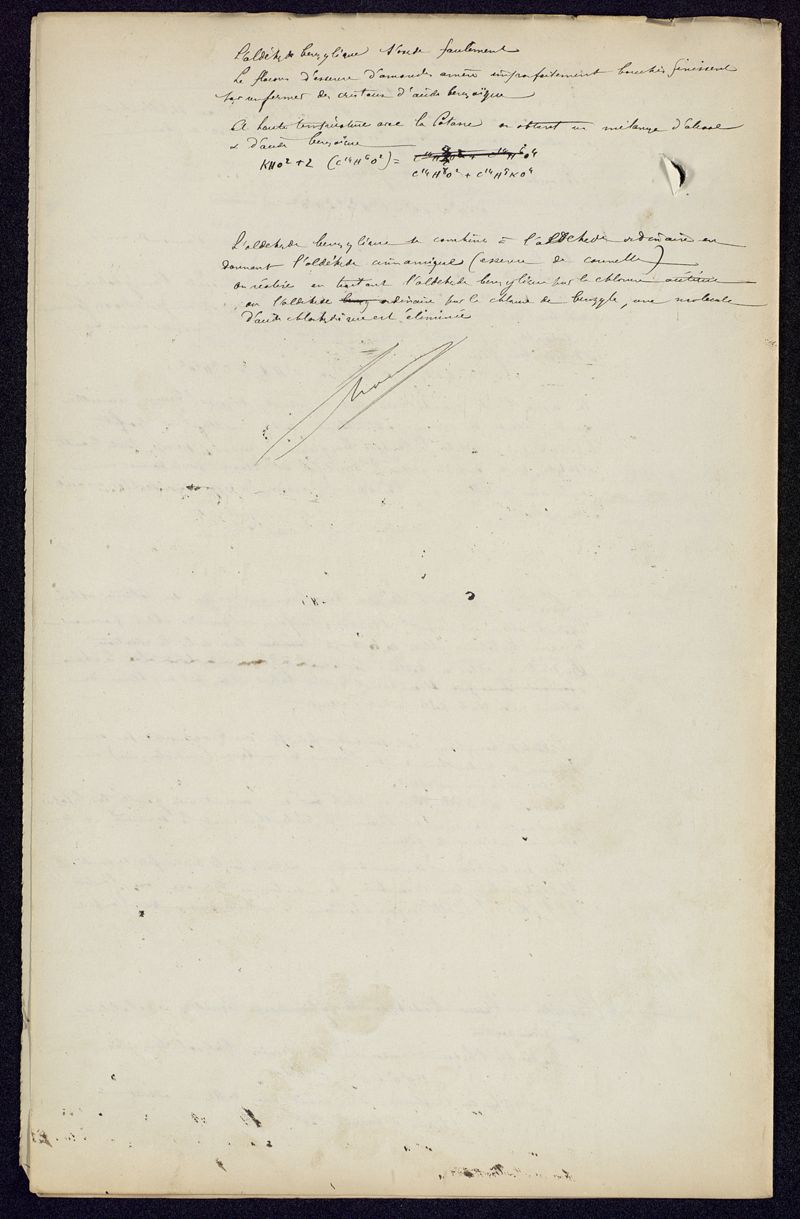 L'aldéhyde benzylique s'oxyde facilement
Le flacons d'essence d'amandes amères imparfaitement bouchés finissent
par renfermer des cristaux d'acide benzoïque
A haute température avec la Potasse on obtient un mélange d'alcool
& d'acide benzoïque
KHO² + 2 (C¹⁴H⁶O²) =
C¹⁴H⁸O² + C¹⁴H⁵KO⁴
L'aldehyde benzylique se combine à l'aldehyde ordinaire en
donnant l'aldéhyde cinnamique (essence de cannelle)
on réalise en traitant l'aldehyde benzylique par le chlorure
ou l'aldehyde ordinaire par le chlorure de benzyle, une molecule
d'acide chlorhydrique est éliminée